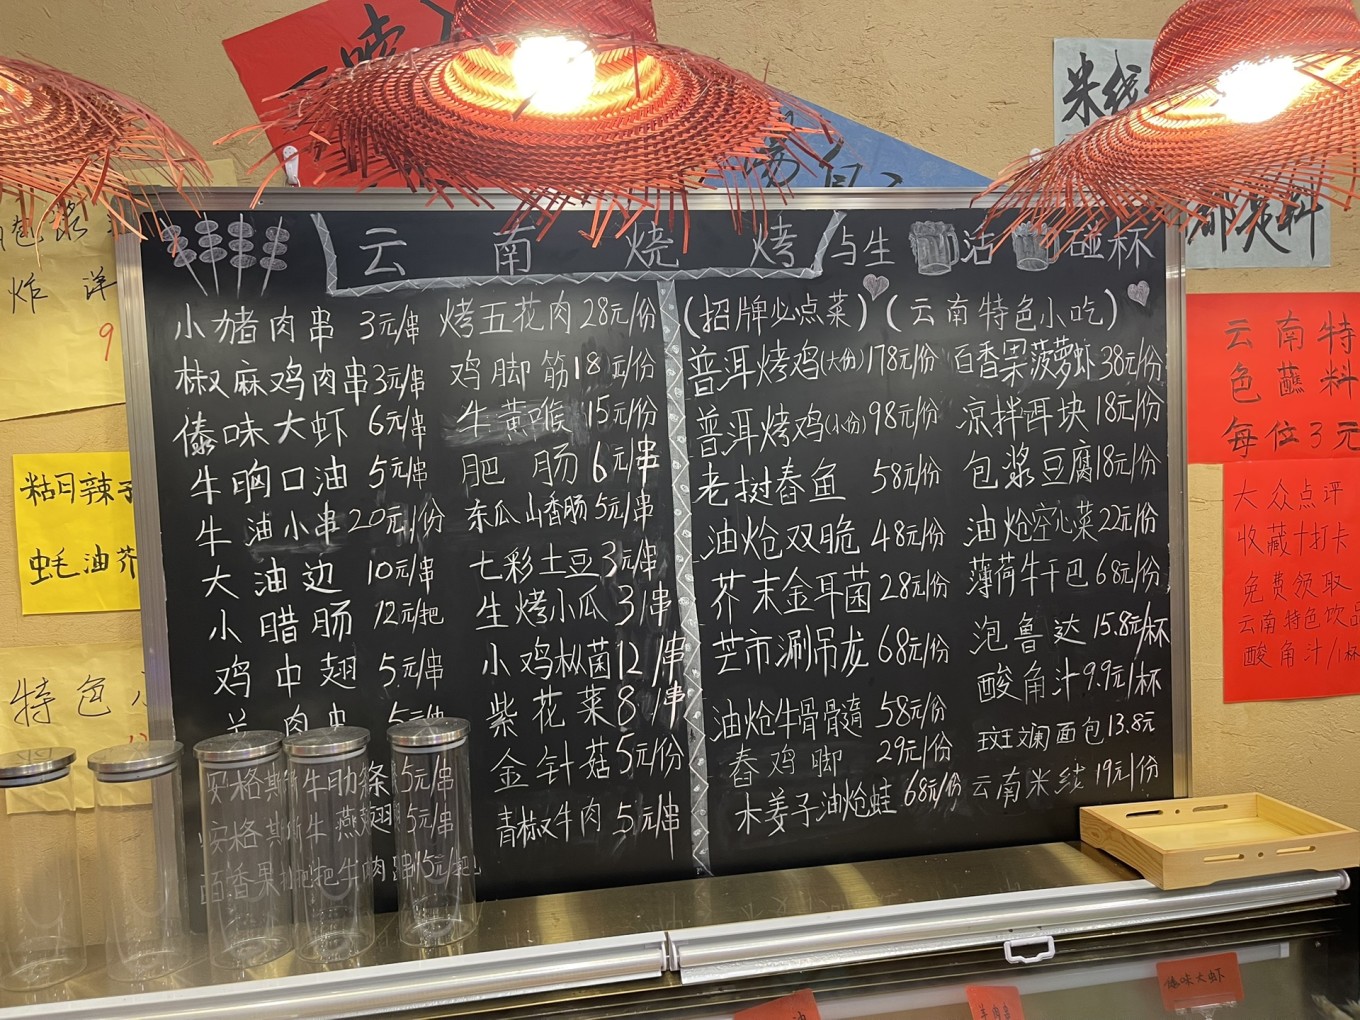 云南烧烤与生活碰杯
小猪肉串 3元/串
椒麻鸡肉串 3元/串
傣味大虾 6元/串
牛胸口油 5元/串
牛油小串 20元/份
大油边 10元/串
小腊肠 12元/把
鸡中翅 5元/串
羊肉串 5元/串
安格斯牛肋条 5元/串
安格斯牛燕翅 5元/串
百香果 把把牛肉串 15元/把
烤五花肉 28元/份
鸡脚筋 18元/份
牛黄喉 15元/份
肥肠 6元/串
东瓜山香肠 5元/串
七彩土豆 3元/串
生烤小瓜 3/串
小鸡枞菌 12/串
紫花菜 8/串
金针菇 5元/份
青椒牛肉 5元/串
(招牌必点菜)
普洱烤鸡(大份) 178元/份
普洱烤鸡(小份) 98元/份
老树舂鱼 58元/份
油炝双脆 48元/份
芥末金耳菌 28元/份
芒市涮吊龙 68元/份
油炝牛骨髓 58元/份
舂鸡脚 29元/份
木姜子油炝蛙 68元/份
(云南特色小吃)
百香果菠萝虾 38元/份
凉拌饵块 18元/份
包浆豆腐 18元/份
油炝空心菜 22元/份
薄荷牛干巴 68元/份
泡鲁达 15.8元/杯
酸角汁 9.9元/杯
斑斓面包 13.8元
云南米线 19元/份
米线
都是料
云南特
色蘸料
每位3元
大众点评
收藏+打卡
免费领取
云南特色饮品
酸角汁/1杯
包浆
炸洋
9
特色
油芥
傣味大虾
羊肉串